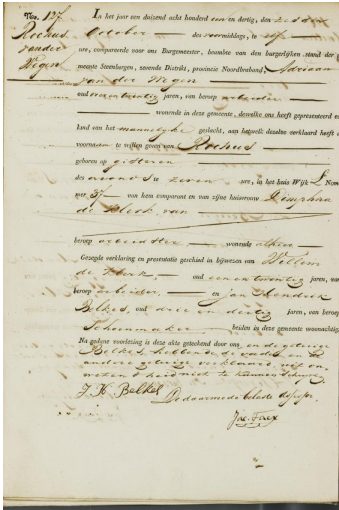 No. 137.
Rochus
van der
Wegen
In het jaar een duizend acht honderd een en dertig, den zesden
October des voormiddags, te elf
ure, compareerde voor ons Burgemeester, beambte van den burgerlijken stand der
meente Steenbergen, zevende Distrikt, provincie Noordbraband, Adriaan
van der Wegen
oud jaren, van beroep arbeider
wonende in deze gemeente, dewelke ons heeft gepresenteerd een
kind van het mannelijke geslacht, aan hetwelk dezelve verklaard heeft
voornaam te willen geven van Rochus
geboren op gisteren
des avonds te zeven ure, in het huis Wijk L Nom
mer 37 van hem comparant en van zijne huisvrouw Dimphna
de Klerk, van
beroep arbeidster wonende alhier
Gezegde verklaring en presentatie geschied in bijwezen van Willem
de Klerk, oud een en twintig jaren, van
beroep arbeider, en Jan Hendrik
Belkes, oud drie en dertig jaren, van beroep
Schoenmaker, beiden in deze gemeente woonachtig
Na gedane voorlezing is deze akte geteekend door ons en de getuige
Belkes, hebbende de vader en de
andere getuige verklaard, uit on-
wetendheid niet te kunnen schrijven.
J. H. Belkes
De daarmede belaste
Jac.